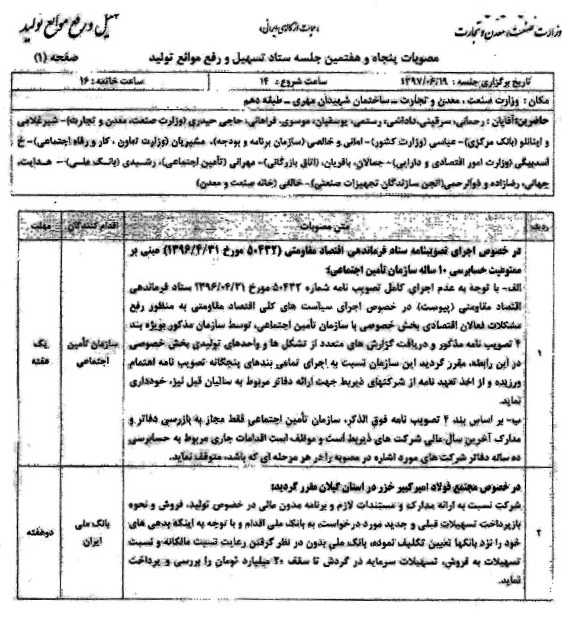 وزارت صنعت، معدن و تجارت
حمایت از کالای ایرانی
تسهیل و رفع موانع تولید
مصوبات پنجاه و هفتمین جلسه ستاد تسهیل و رفع موانع تولید صفحه (۱)
تاریخ برگزاری جلسه : ۱۳۹۷/۰۶/۱۹ ساعت شروع : ۱۴ ساعت خاتمه : ۱۶
مکان : وزارت صنعت ، معدن و تجارت - ساختمان شهیدان مهری - طبقه دهم
حاضرین:آقایان : رحمانی، سرقینی، داداشی، رستمی، یوسفیان، موسوی، فراهانی، حاجی حیدری (وزارت صنعت، معدن و تجارت)- شیرغلامی
و اینانلو (بانک مرکزی)- عباسی (وزارت کشور)- امانی و خالصی (سازمان برنامه و بودجه)، مشیریان (وزارت تعاون ، کار و رفاه اجتماعی)- خ
اسدبیگی (وزارت امور اقتصادی و دارایی)- جمالان، باقریان، (اتاق بازرگانی)- مهرانی (تأمین اجتماعی)، رشیدی (بانک ملی)- هدایت،
جهانی، رضازاده و ذوالرحمی(انجمن سازندگان تجهیزات صنعتی)- خالقی (خانه صنعت و معدن)
ردیف متن مصوبات اقدام کنندگان مهلت
در خصوص اجرای تصویبنامه ستاد فرماندهی اقتصاد مقاومتی (۵۰۴۳۲ مورخ ۱۳۹۶/۴/۳۱) مبنی بر
ممنوعیت حسابرسی ۱۰ ساله سازمان تأمین اجتماعی:
الف- با توجه به عدم اجرای کامل تصویب نامه شماره ۵۰۴۳۲ مورخ ۱۳۹۶/۰۴/۳۱ ستاد فرماندهی
اقتصاد مقاومتی (پیوست) در خصوص اجرای سیاست های کلی اقتصاد مقاومتی به منظور رفع
مشکلات فعالان اقتصادی بخش خصوصی با سازمان تأمین اجتماعی، توسط سازمان مذکور بویژه بند
۴ تصویب نامه مذکور و دریافت گزارش های متعدد از تشکل ها و واحدهای تولیدی بخش خصوصی
در این رابطه، مقرر گردید این سازمان نسبت به اجرای تمامی بندهای پنجگانه تصویب نامه اهتمام
ورزیده و از اخذ تعهد نامه از شرکتهای ذیربط جهت ارائه دفاتر مربوط به سالیان قبل نیز، خودداری
نماید.
ب- بر اساس بند ۴ تصویب نامه فوق الذکر، سازمان تأمین اجتماعی فقط مجاز به بازرسی دفاتر و
مدارک آخرین سال مالی شرکت های ذیربط است و موظف است اقدامات جاری مربوط به حسابرسی
ده ساله دفاتر شرکت های مورد اشاره در مصوبه را در هر مرحله ای که باشد، متوقف نماید.
۱
سازمان تأمین
اجتماعی
یک
هفته
در خصوص مجتمع فولاد امیرکبیر خزر در استان گیلان مقرر گردید:
شرکت نسبت به ارائه مدارک و مستندات لازم و برنامه مدون مالی در خصوص تولید، فروش و نحوه
بازپرداخت تسهیلات قبلی و جدید مورد درخواست، به بانک ملی اقدام و با توجه به اینکه بدهی های
خود را نزد بانکها تعیین تکلیف نموده، بانک ملی بدون در نظر گرفتن رعایت نسبت مالکانه و نسبت
تسهیلات به فروش، تسهیلات سرمایه در گردش تا سقف ۲۰ میلیارد تومان را بررسی و پرداخت
نماید.
۲
بانک ملی
ایران
دوهفته